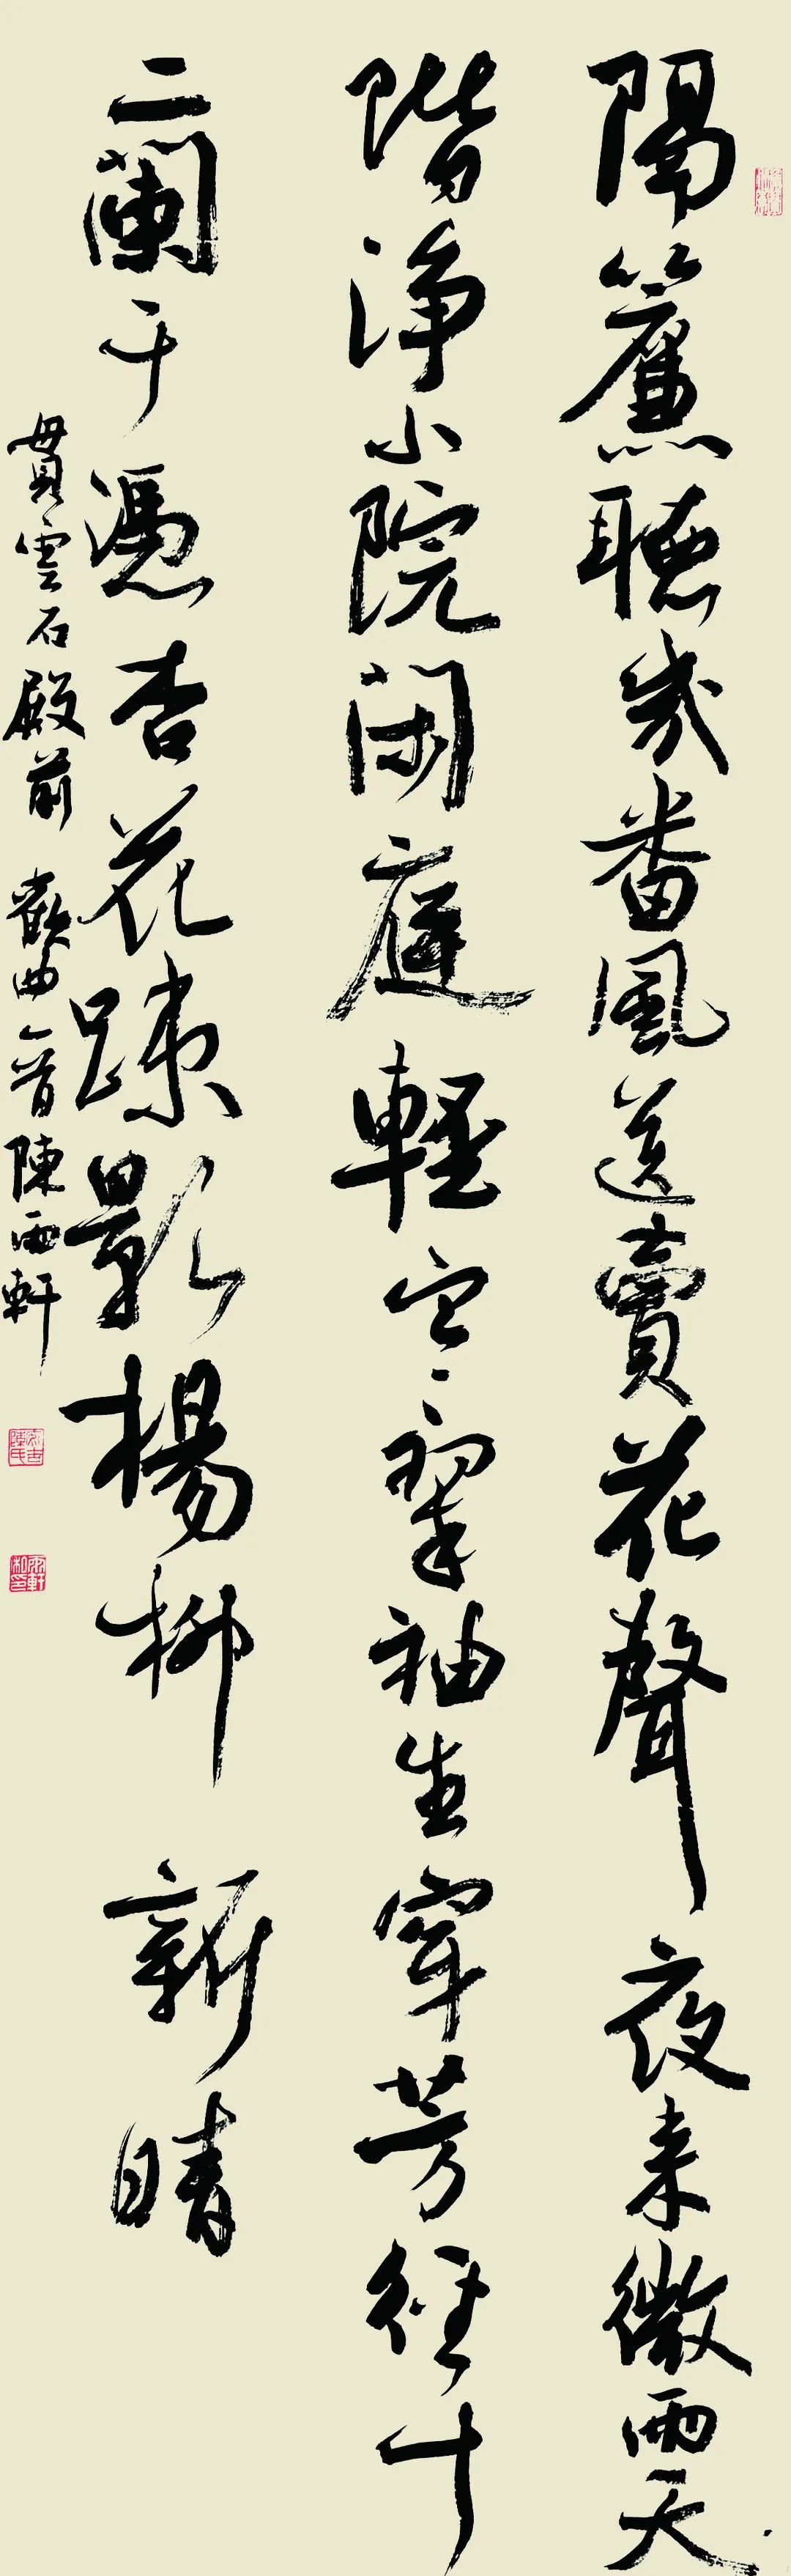 隔簾聽幾番風送賣花聲夜来微雨天
階淨小院閑庭輕寒翠袖生穿芳徑十
二闌干憑杏花踈影楊柳新晴
貫雲石殿前歡曲一首陳雨軒